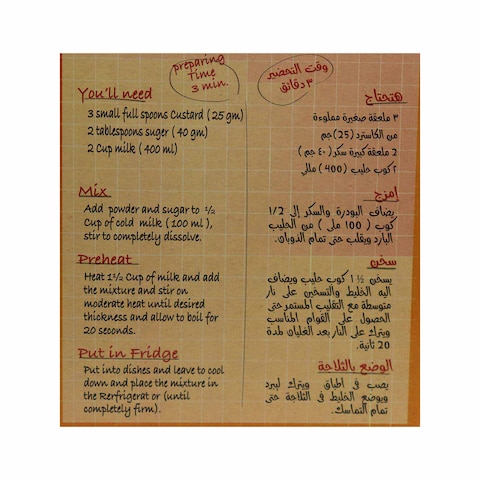 preparing
time
3 min.
You'll need
3 small full spoons Custard ( 25 gm)
2 tablespoons suger ( 40 gm)
2 Cup milk ( 400 ml)
Mix
Add powder and sugar to ½
Cup of cold milk ( 100 ml ),
stir to completely dissolve.
Preheat
Heat 1½ Cup of milk and add
the mixture and stir on
moderate heat until desired
thickness and allow to boil for
20 seconds.
Put in Fridge
Put into dishes and leave to cool
down and place the mixture in
the Rerfrigerat or (until
completely firm).
وقت التحضير
٣ دقائق
هتحتاج
٣ ملعقة صغيرة مملوءة
من الكاسترد (25)جم
2 ملعقة كبيرة سكر ( ٤٠ جم )
٢ كوب حليب (400 ) مللي
إمزج
يضاف البودرة والسكر إلى 1/2
كوب ( 100 ملي ) من الحليب
البارد ويقلب حتى تمام الذوبان.
سخن
يسخن ½ 1 كوب حليب ويضاف
اليه الخليط والتسخين على نار
متوسطة مع التقليب المستمر حتى
الحصول على القوام المناسب
ويترك على النار بعد الغليان لمدة
20 ثانية.
الوضع بالثلاجة
يصب فى اطباق ويترك ليبرد
ويوضع الخليط فى الثلاجة حتى
تمام التماسك.